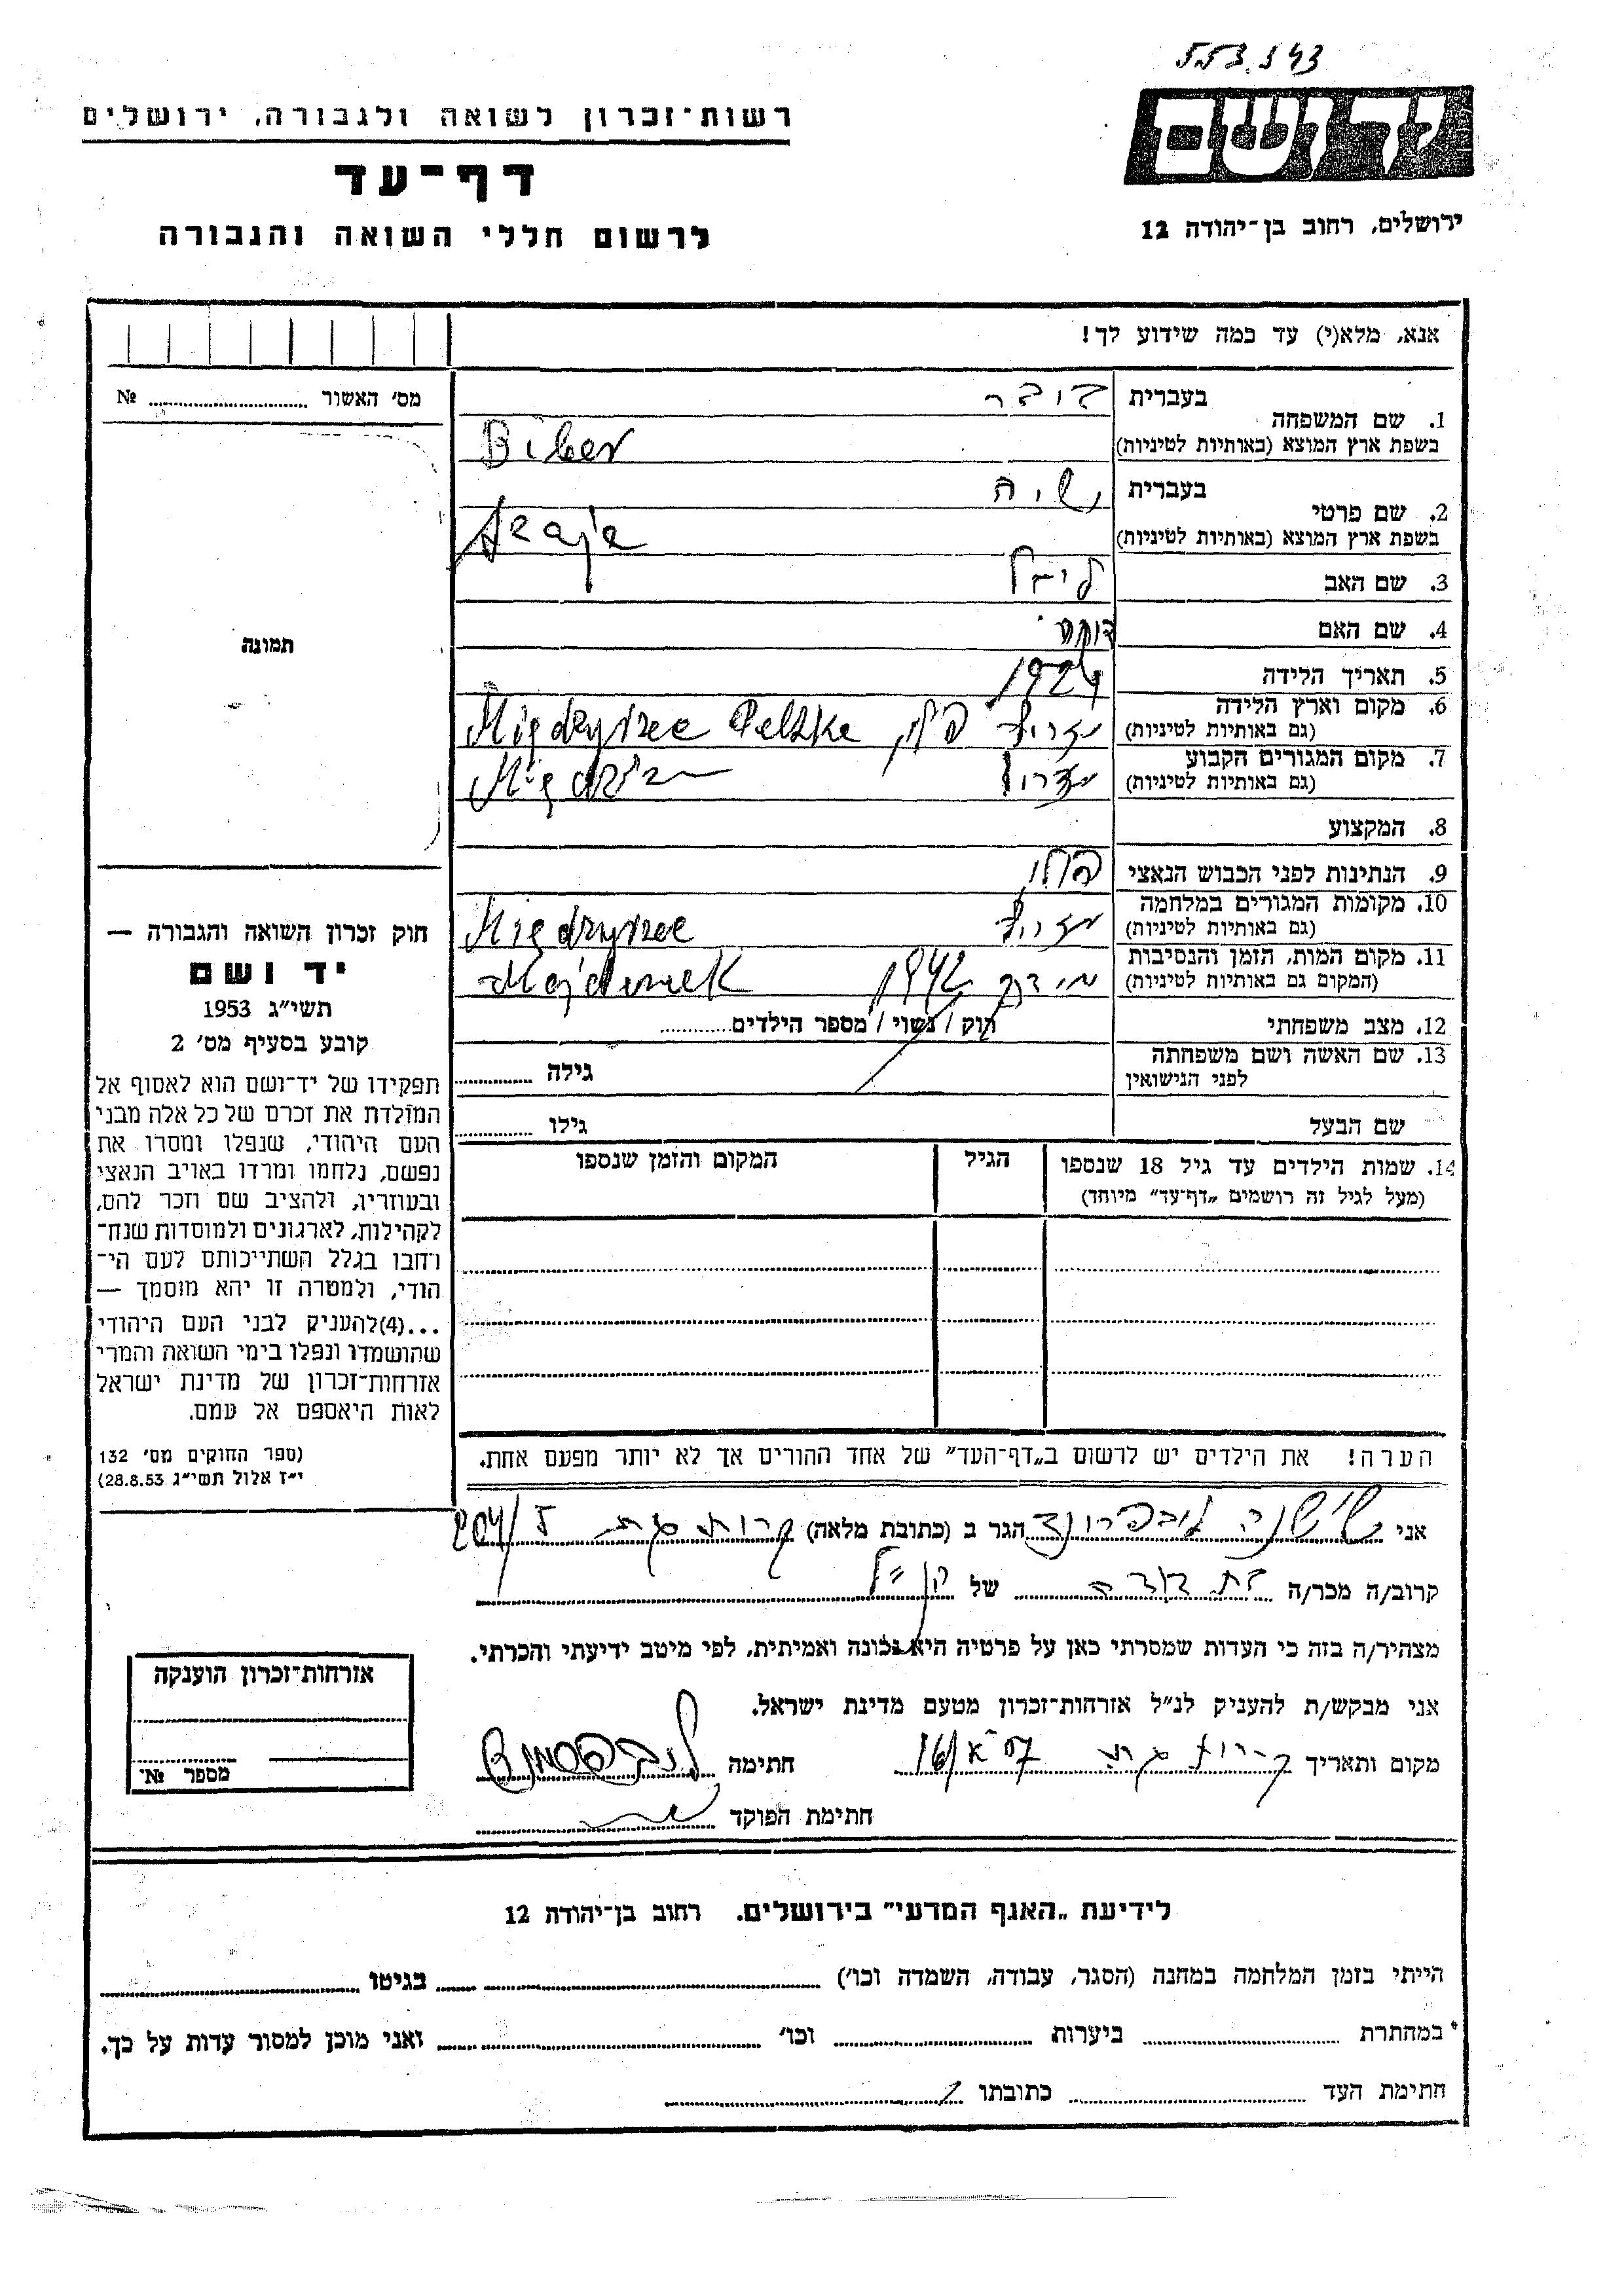 רשות־זכרון לשואה ולגבורה, ירושלים
דף־עד
לרשום חללי השואה והגבורה
ידושם
ירושלים, רחוב בן־יהודה 12
אנא, מלא(י) עד כמה שידוע לך!
מס׳ האשור № 
תמונה
1. שם המשפחה
בעברית
בשפת ארץ המוצא (באותיות לטיניות) Biber
2. שם פרטי
בעברית
בשפת ארץ המוצא (באותיות לטיניות)
3. שם האב
4. שם האם
5. תאריך הלידה 1924
6. מקום וארץ הלידה
(גם באותיות לטיניות) פולין
7. מקום המגורים הקבוע
(גם באותיות לטיניות)
8. המקצוע
9. הנתינות לפני הכבוש הנאצי
10. מקומות המגורים במלחמה
(גם באותיות לטיניות)
11. מקום המות, הזמן והנסיבות 1942
(המקום גם באותיות לטיניות)
12. מצב משפחתי רוק / נשוי / מספר הילדים
13. שם האשה ושם משפחתה
לפני הנישואין גילה
שם הבעל גילו
14. שמות הילדים עד גיל 18 שנספו
(מעל לגיל זה רושמים „דף־עד״ מיוחד)
הגיל
המקום והזמן שנספו
חוק זכרון השואה והגבורה —
יד ושם
תשי״ג 1953
קובע בסעיף מס׳ 2
תפקידו של יד־ושם הוא לאסוף אל
המולדת את זכרם של כל אלה מבני
העם היהודי, שנפלו ומסרו את
נפשם, נלחמו ומרדו באויב הנאצי
ובעוזריו, ולהציב שם וזכר להם,
לקהילות, לארגונים ולמוסדות שנח־
רחבו בגלל השתייכותם לעם הי־
הודי, ולמטרה זו יהא מוסמך —
...(4)להעניק לבני העם היהודי
שהושמדו ונפלו בימי השואה והמרי
אזרחות־זכרון של מדינת ישראל
לאות היאספם אל עמם.
(ספר החוקים מס׳ 132
י״ז אלול תשי״ג 28.8.53)
הערה! את הילדים יש לרשום ב„דף־העד״ של אחד ההורים אך לא יותר מפעם אחת.
אני שושנה הגר ב (כתובת מלאה) קרית גת
קרוב/ה מכר/ה בת דודה של הנ״ל
מצהיר/ה בזה כי העדות שמסרתי כאן על פרטיה היא נכונה ואמיתית, לפי מיטב ידיעתי והכרתי.
אני מבקש/ת להעניק לנ״ל אזרחות־זכרון מטעם מדינת ישראל.
מקום ותאריך קרית גת חתימה
חתימת הפוקד
אזרחות־זכרון הוענקה
מספר №
לידיעת „האגף המדעי״ בירושלים. רחוב בן־יהודה 12
הייתי בזמן המלחמה במחנה (הסגר, עבודה, השמדה וכו׳) בגיטו
במחתרת ביערות וכו׳ ואני מוכן למסור עדות על כך.
חתימת העד כתובתו